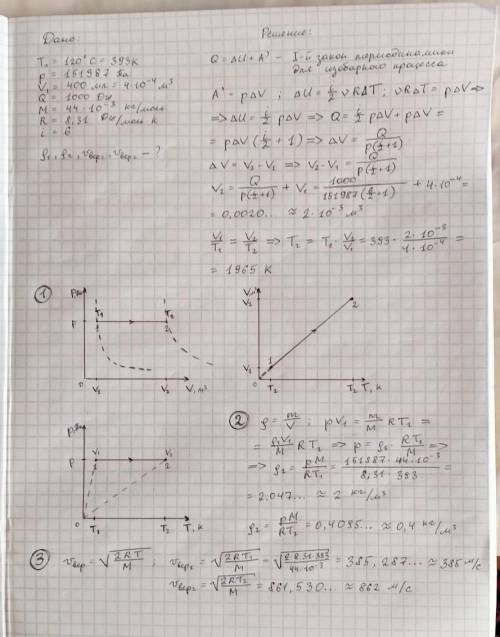 Дано:
T₁ = 120° C = 393К
p = 151987 Па
V₁ = 400 мл = 4·10⁻⁴ м³
Q = 1000 Дж
M = 44·10⁻³ кг/моль
R = 8,31 Дж/моль К
i = 6
ρ₁, ρ₂, v вер₁, v вер₂ - ?
Решение:
Q = ΔU + A' - I-й закон термодинамики
для изобарного процесса
A' = pΔV ; ΔU = i/2 νRΔT ; νRΔT = pΔV ⇒
⇒ ΔU = i/2 pΔV ⇒ Q = i/2 pΔV + pΔV =
= pΔV (i/2 + 1) ⇒ ΔV = Q/p(i/2+1)
ΔV = V₂ - V₁ ⇒ V₂ - V₁ = Q/p(i/2+1)
V₂ = Q/p(i/2+1) + V₁ = 1000/151987(6/2+1) + 4·10⁻⁴ =
= 0,0020.. ≈ 2·10⁻³ м³
V₁/T₁ = V₂/T₂ ⇒ T₂ = T₁ · V₂/V₁ = 393 · 2·10⁻³/4·10⁻⁴ =
= 1965 К
①
p, Па
T₁
T₂
p
1
2
0
V₁
V₂
V, м³
V, м³
V₂
2
V₁
1
0
T₁
T₂
T, К
p, Па
p
V₁
V₂
1
2
0
T₁
T₂
T, К
② ρ = m/V ; pV₁ = m/M RT₁ =
= ρ₁V₁/M RT₁ ⇒ p = ρ₁ · RT₁/M ⇒
⇒ ρ₁ = pM/RT₁ = 151987·44·10⁻³/8,31·393 =
= 2,047... ≈ 2 кг/м³
ρ₂ = pM/RT₂ = 0,4095... ≈ 0,4 кг/м³
③ v вер = √2RT/M ; v вер₁ = √2RT₁/M = √2·8,31·393/44·10⁻³ = 385,287... ≈ 385 м/с
v вер₂ = √2RT₂/M = 861,530... ≈ 862 м/с